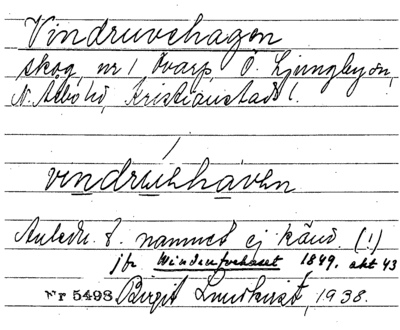 Vindruvehagen
skog, nr 1 Övarp, Ö. Ljungby sn,
N. Åsbo hd, Kristianstads l.
vindruehaven
Anledn. t. namnet ej känd. (!)
jfr 1849, akt 43
Nr 5498 Birgit Lundkvist, 1938.